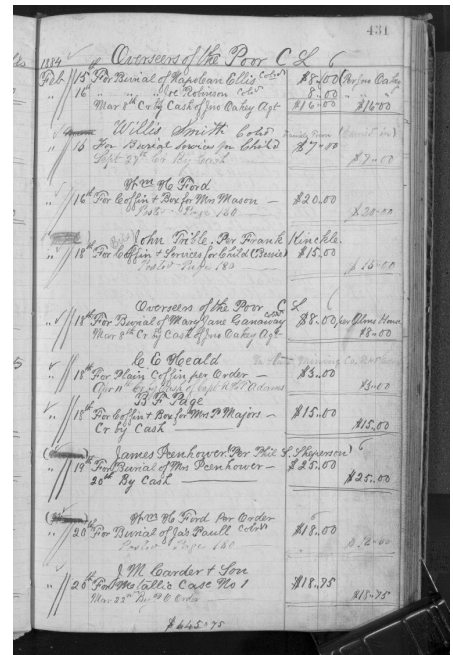 431
1884 Overseers of the Poor C L 6
Feb 15 For Burial of Napolean Ellis Cold $8.00 (Per Jno Oakey
" 16th " " " Joe Robinson Cold 8.00
Mar 8th Cr by Cash of Jno Oakey Agt $16.00 $16.00
Willis Smith Cold
" 15 For Burial Services for Child $7.00
Sept 27th Cr By Cash $7.00
Wm H Ford
" 16th For Coffin & Box for Mrs Mason — $20.00
Posted Page 160 $20.00
John Trible, Per Frank Kinckle
" 18th For Coffin & Services for Child (Bessie) $15.00
Posted Page 180 $15.00
Overseers of the Poor C L 6
" 18th For Burial of Mary Jane Ganaway Cold $8.00 per Alms House
Mar 8th Cr by Cash of Jno Oakey Agt $8.00
C E Heald
" 18th For Plain Coffin per Order — $3.00
Apr 11th Cr by Cash of Capt R H T Adams $3.00
B F Page
" 18th For Coffin & Box for Mrs P Majors — $15.00
Cr by Cash $15.00
James Penhower (Per Phil S. Sheperson) 6
" 19th For Burial of Mrs Penhower — $25.00
20th By Cash $25.00
Wm H Ford Per Order 6
" 20th For Burial of Jas Paull Cold $18.00
Posted Page 160
J M Carder & Son
" 20th For Metallic Case No 1 $18.75
Mar 22nd By $18.75
$645.75